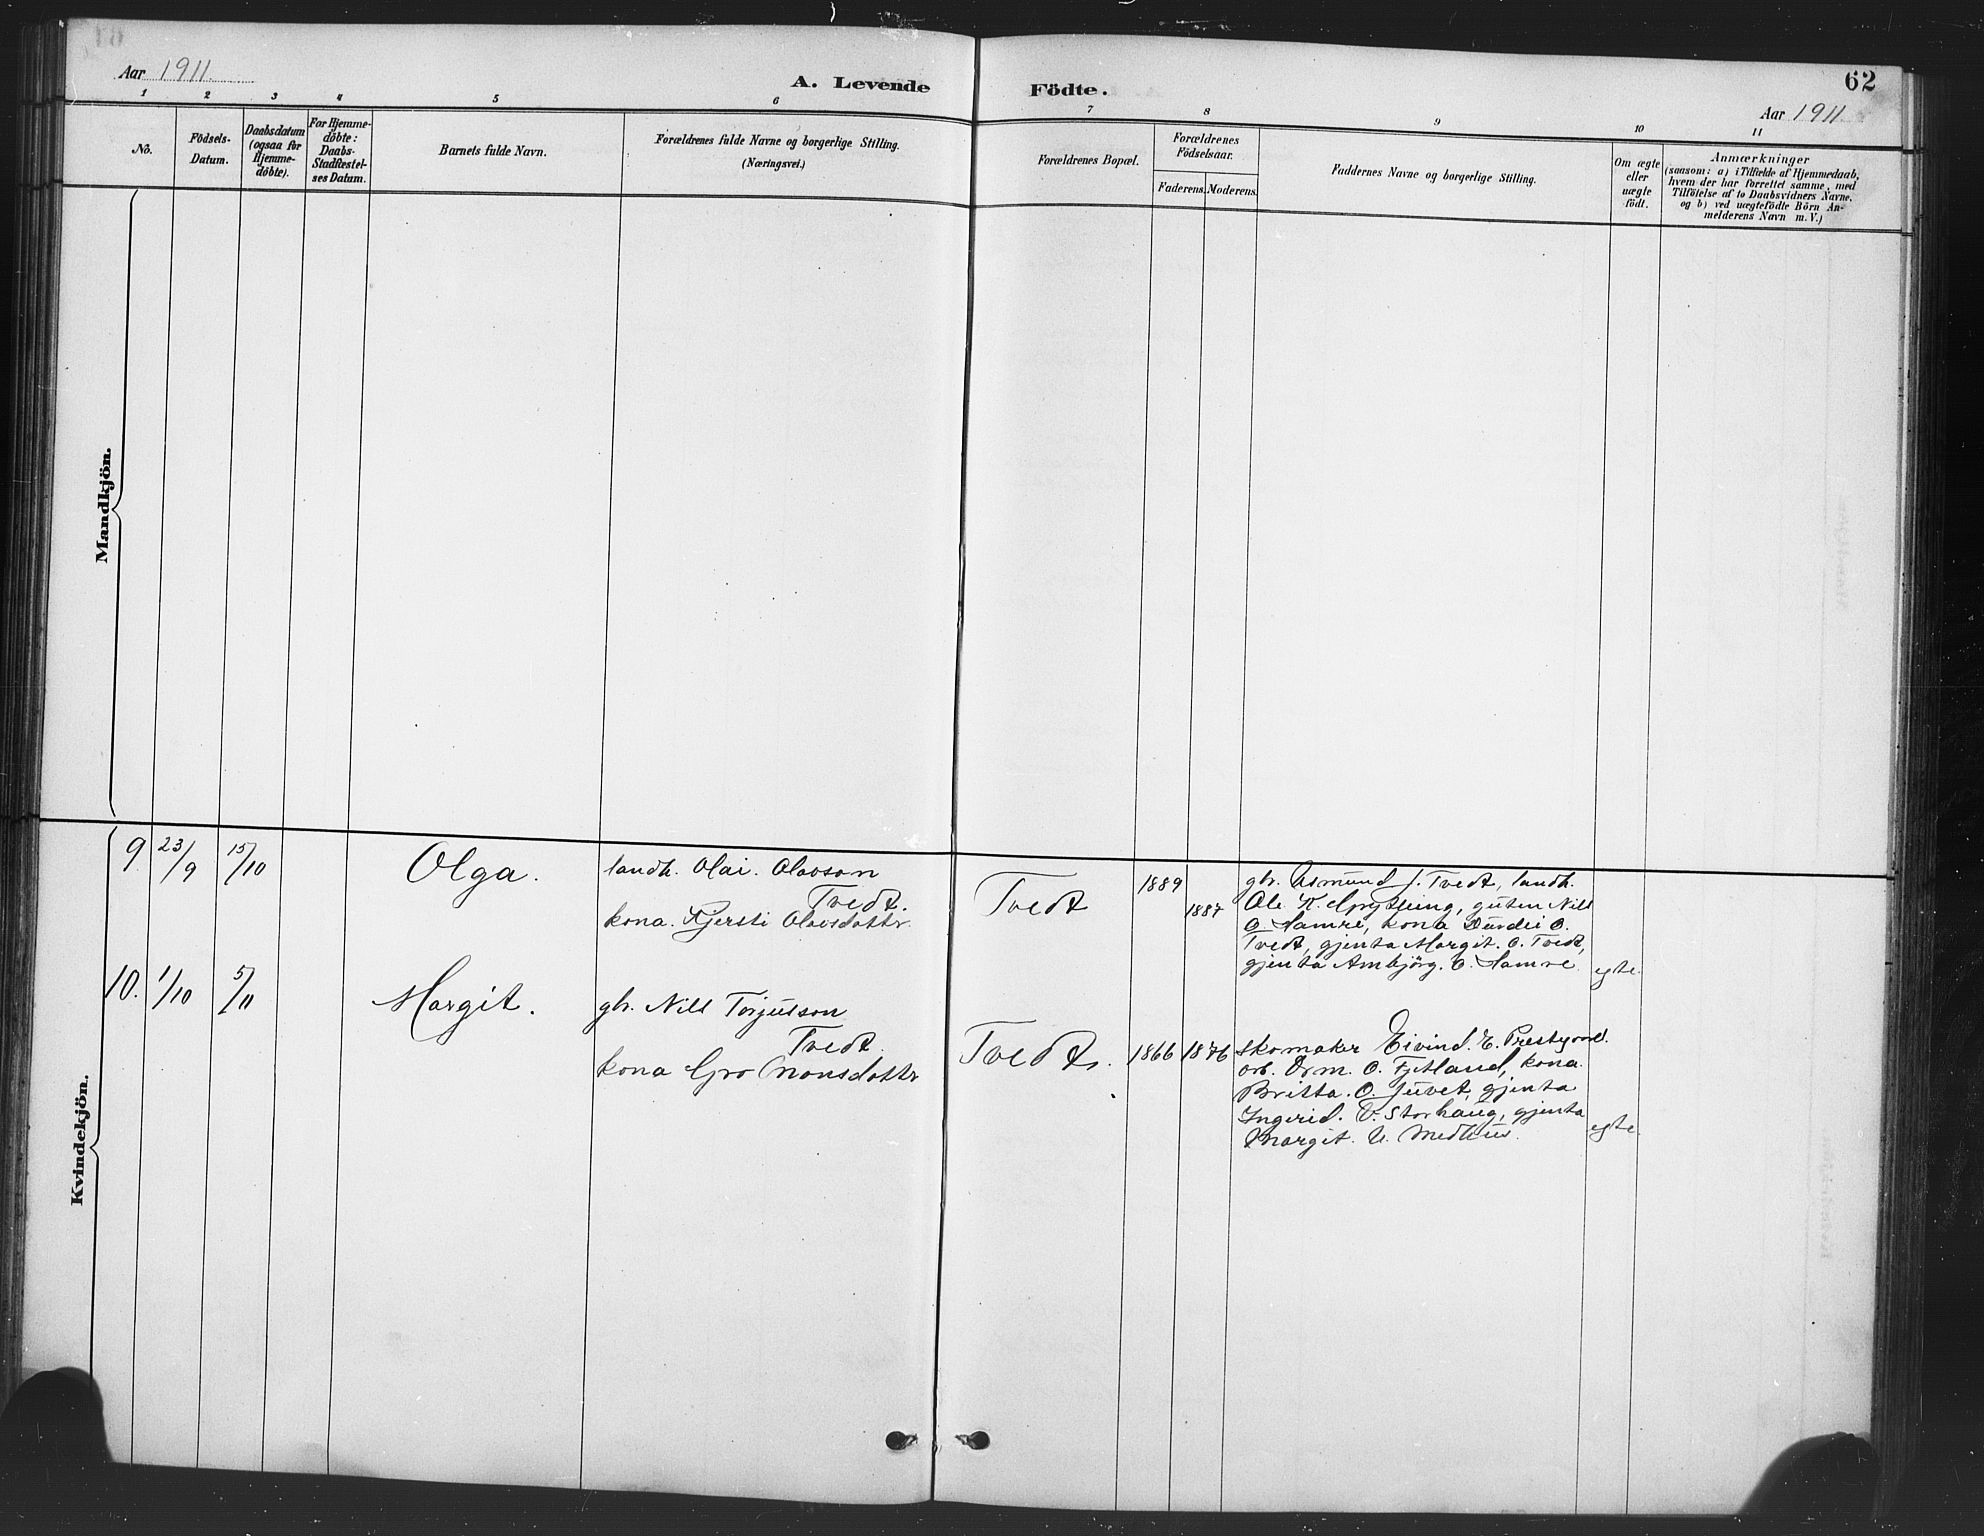 Aar 1911.
A. Levende Födte.
62
Aar 1911.
1 2 3 4 5 6 7 8 9 10 11
No.
Födsels-
Datum.
Daabsdatum
(ogsaa for
Hjemme-
döbte).
For Hjemme-
döbte:
Daabs-
Stadfæstel-
ses Datum.
Barnets fulde Navn.
Forældrenes fulde Navne og borgerlige Stilling.
(Næringsvei.)
Forældrenes Bopæl.
Forældrenes
Födselsaar.
Faderens.
Moderens.
Faddernes Navne og borgerlige Stilling.
Om ægte
eller
uægte
födt.
Anmærkninger
(saasom: a) i Tilfælde af Hjemmedaab,
hvem der har forrettet samme, med
Tilföielse af to Daabsvidners Navne,
og b) ved uægtefödte Börn An-
melderens Navn m. V.)
Mandkjön.
Kvindekjön.
9. 23/9 15/10 Olga.
landh. Olai. Olavson
Tvedt.
kona. Kjersti Olavsdottr.
Tvedt
1889
1887
gbr. Asmund J. Tvedt, landh.
Ole K. , guten Nils
O. Hamre, kona Durdei O.
Tvedt, gjenta Margit. O. Tvedt,
gjenta Ambjörg. O. Hamre.
egte.
10. 1/10 5/11 Margit.
gbr. Nils Torjusson
Tvedt.
kona Gro Monsdottr
Tvedt.
1866 1876
skomaker Eivind. E. Prestgard.
arb. Orm. O. Fjetland, kona
Britta. O. Juvet, gjenta
Ingerid. V. Storhaug, gjenta
Margit. U. Medhus.
egte.